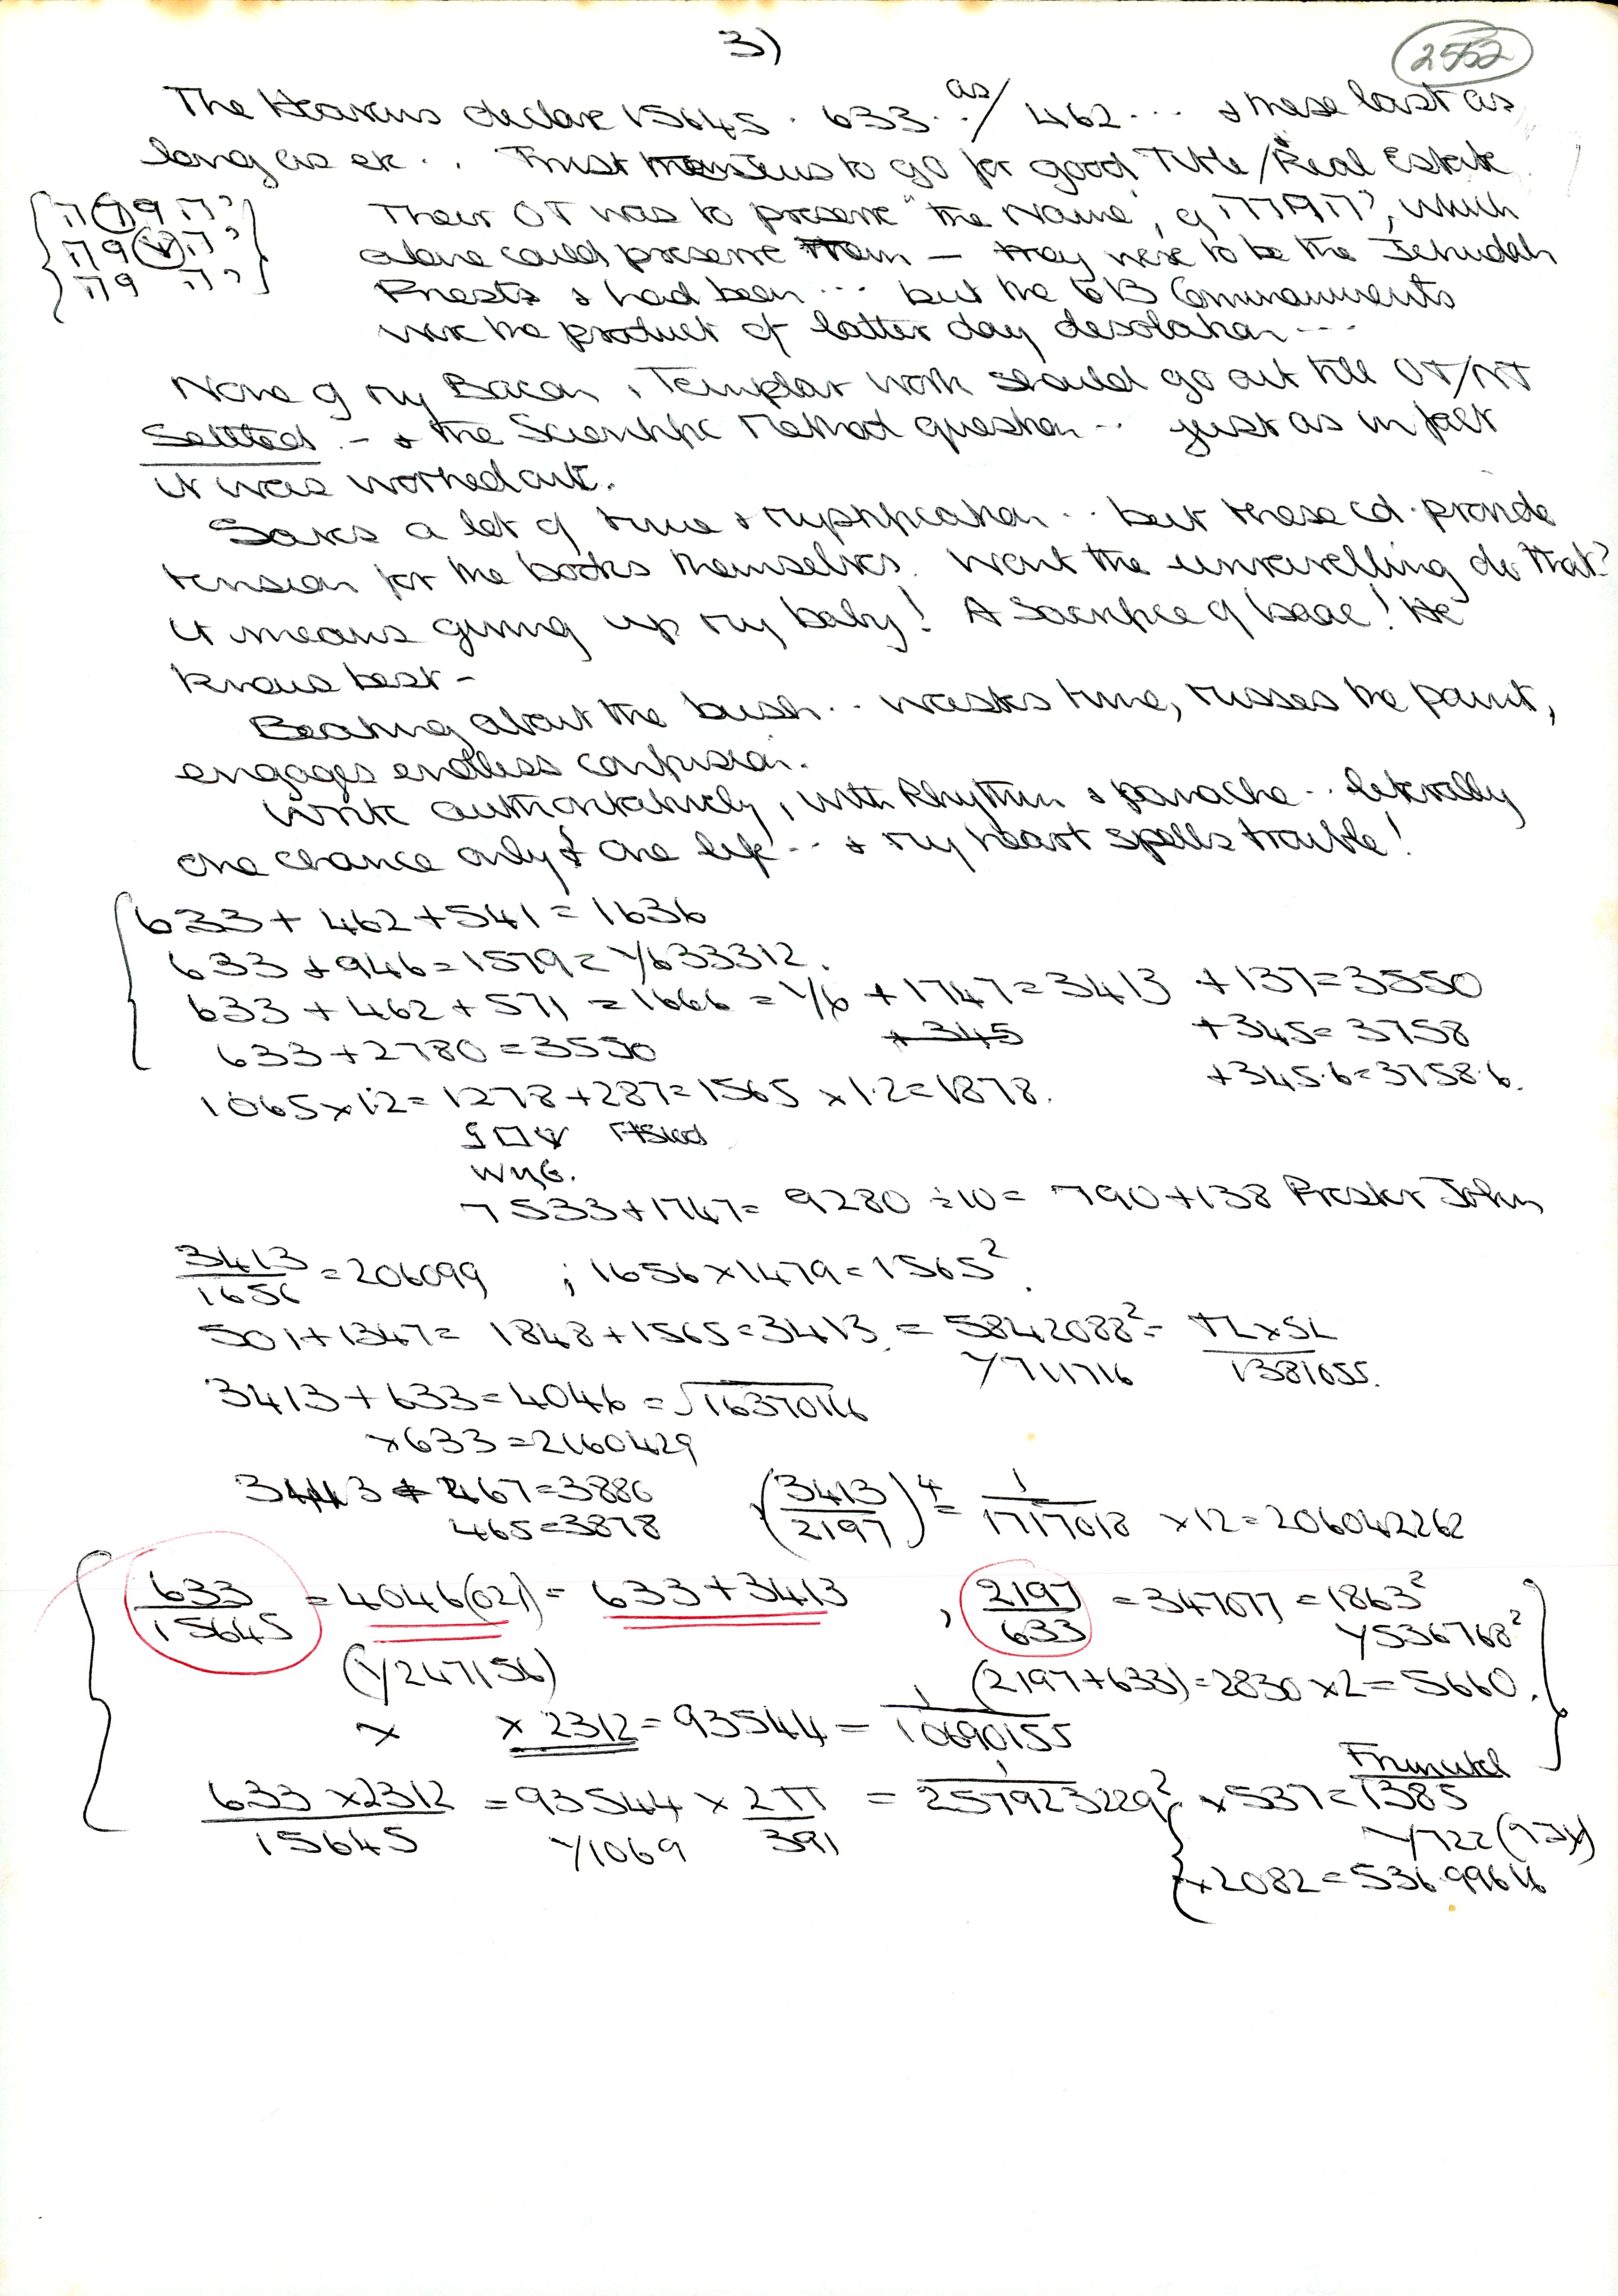 3)
2552
The Heavens declare 15645 . 633 .. as/ 462 ... & these last as
long as etc .. Trust Jesus to go for good Title/Real Estate
Their OT was to preserve "the Name", of יהפהה, which
alone could preserve them — they were to be the Jehudah
Priests & had been ... but the Commandments
were the product of latter day desolation ---
None of my Bacon, Templar work should go out till OT/NT
Settled - & the Scientific Method question .. just as in fact
it was worked out.
Saves a lot of time & mystification .. but these cd. provide
tension for the books themselves. Wont the unravelling do that?
It means giving up my baby! A Sacrifice of Isaac! He
knows best -
Beating about the bush .. wastes time, misses the point,
engages endless confusion.
Write authoritatively, with Rhythm & panache .. literally
one chance only & one life .. & my heart spells trouble!
633 + 462 + 541 = 1636
633 + 946 = 1579 = 1/633312.
633 + 462 + 571 = 1666 = 1/6 + 1747 = 3413 + 137 = 3550
+ 345 + 345 = 3758
633 + 2780 = 3550 + 345.6 = 3758.6.
1065 x 1.2 = 1278 + 287 = 1565 x 1.2 = 1878.
7533 + 1747 = 9280 ÷ 10 = 790 + 138 Prester John
3413/1656 = 206099 ; 1656 x 1479 = 1565²
501 + 1347 = 1848 + 1565 = 3413 = 5842088² = TL x SL/1381055.
1/711716
3413 + 633 = 4046 = √16370116
x 633 = 2160429
3413 + 467 = 3886
465 = 3878 (3413/2197)⁴ = 1/1717018 x 12 = 206042262
633/15645 = 4046(021) = 633 + 3413 , 2197/633 = 347077 = 1863²
1/536768²
(1/247156) (2197 + 633) = 2830 x 2 = 5660.
x x 2312 = 93544 = 1/10690155
633 x 2312/15645 = 93544 x 2π/391 = 1/257923229² x 537 = 1385
1/1069 1/722
x 2082 = 536.99616